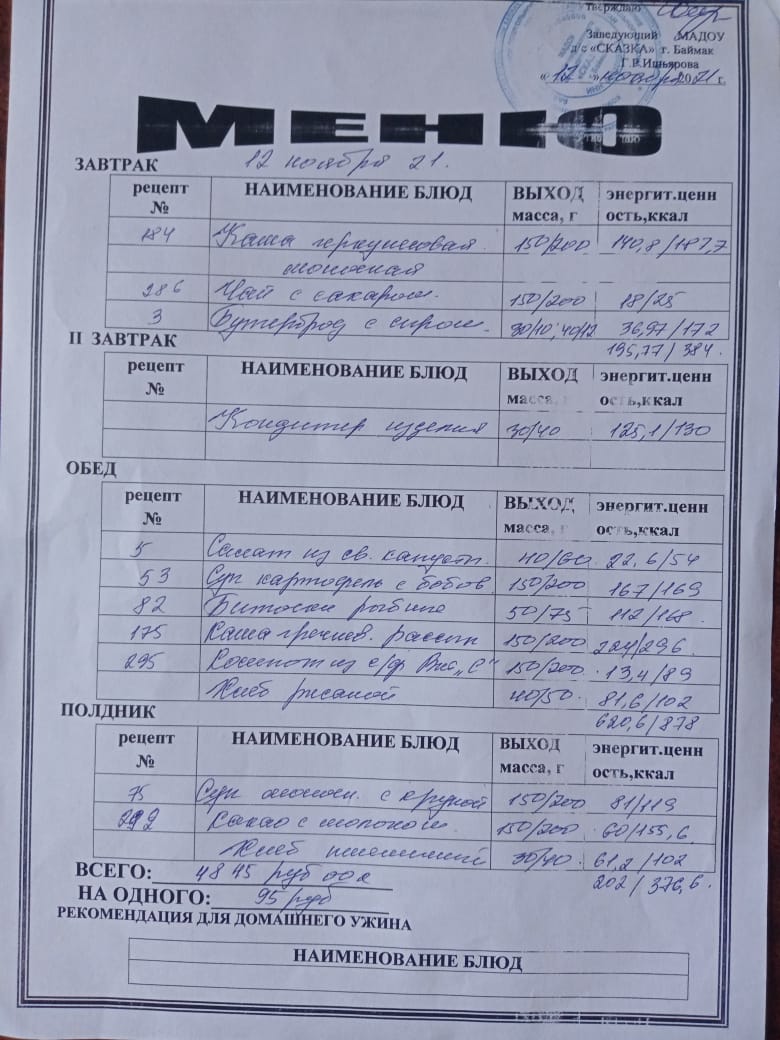 Утверждаю
Заведующий МАДОУ
д/с «СКАЗКА» г. Баймак
Г.Р.Ишьярова
«12» ноября 2021 г.
МЕНЮ
12 ноября 21.
ЗАВТРАК
рецепт № НАИМЕНОВАНИЕ БЛЮД ВЫХОД масса, г энергит.ценн ость,ккал
184 Каша геркулесовая 150/200 140,8/187,7
молочная
286 Чай с сахаром. 150/200 18/25
3 Бутерброд с сыром. 30/10; 40/12 36,97/172
195,77/384.
II ЗАВТРАК
рецепт № НАИМЕНОВАНИЕ БЛЮД ВЫХОД масса, г энергит.ценн ость,ккал
Кондитер изделия 30/40 125,1/130
ОБЕД
рецепт № НАИМЕНОВАНИЕ БЛЮД ВЫХОД масса, г энергит.ценн ость,ккал
5 Салат из св. капусты. 40/60 22,6/54
53 Суп картофель с бобов. 150/200 167/169
82 Биточки рыбные 50/75 112/168.
175 Каша гречнев. рассып 150/200 224/296
295 Компот из с/ф Вит „С“ 150/200 13,4/89
Хлеб ржаной 40/50. 81,6/102
620,6/878
ПОЛДНИК
рецепт № НАИМЕНОВАНИЕ БЛЮД ВЫХОД масса, г энергит.ценн ость,ккал
75 Суп молочн. с крупой 150/200 81/119
292 Какао с молоком. 150/200 60/155,6.
Хлеб пшеничный 30/40. 61,2/102
202/376,6.
ВСЕГО: 4845 руб 00к
НА ОДНОГО: 95 руб
РЕКОМЕНДАЦИЯ ДЛЯ ДОМАШНЕГО УЖИНА
НАИМЕНОВАНИЕ БЛЮД